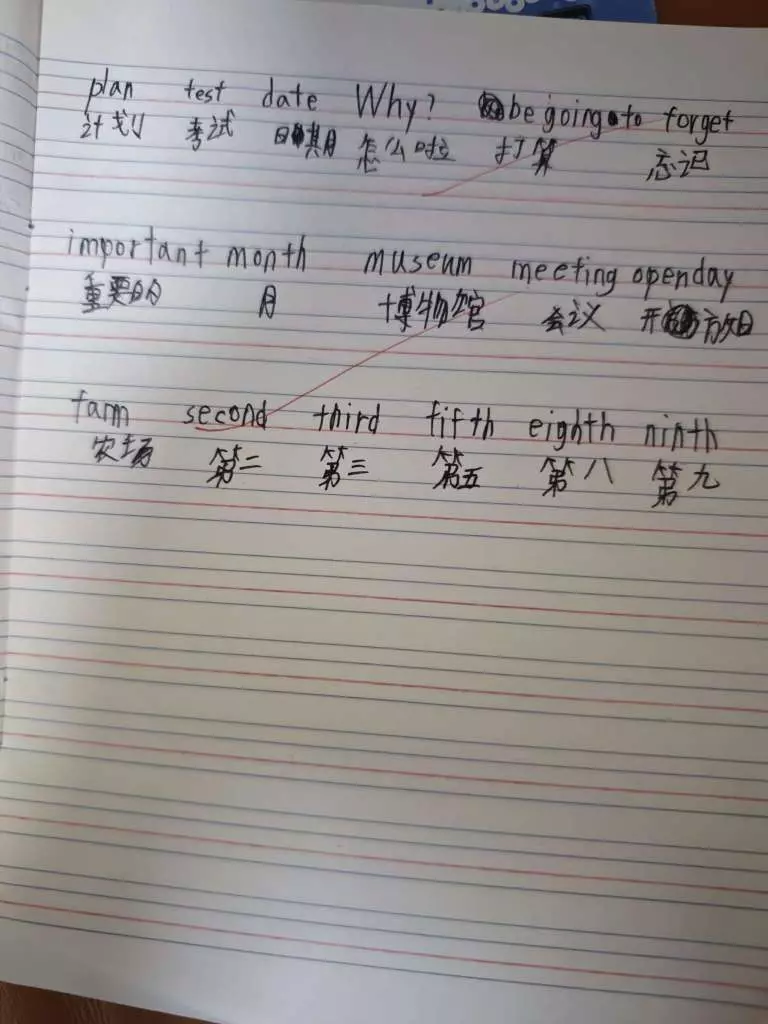 plan test date Why? be going to forget
计划 考试 日期 怎么啦 打算 忘记
important month museum meeting openday
重要的 月 博物馆 会议 开放日
farm second third fifth eighth ninth
农场 第二 第三 第五 第八 第九